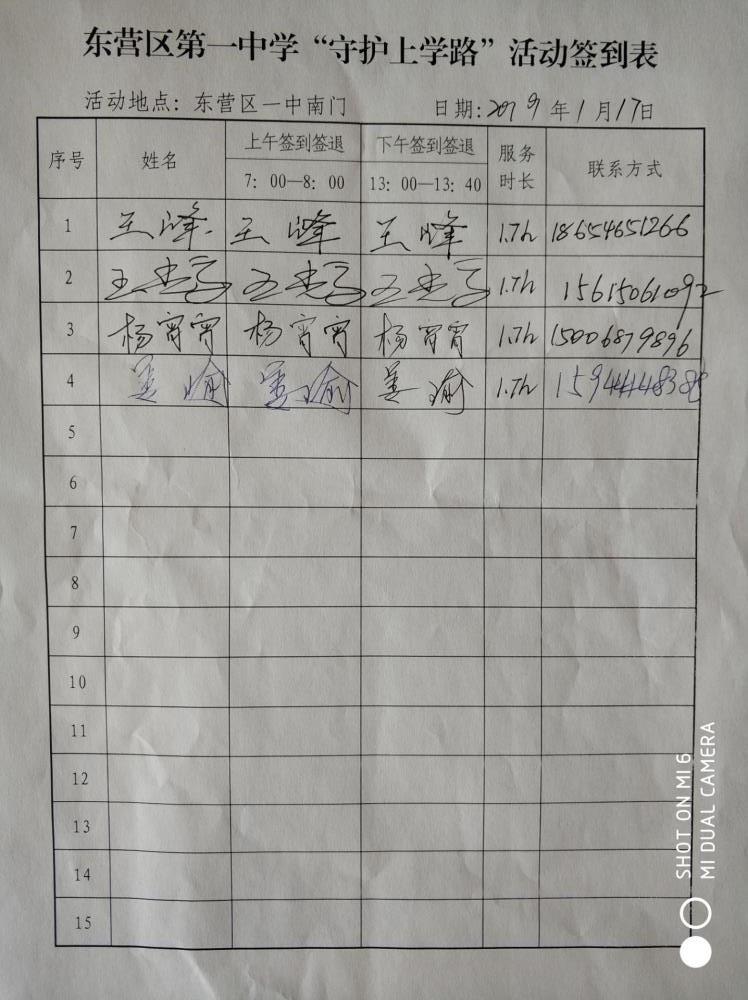 东营区第一中学“守护上学路”活动签到表
活动地点：东营区一中南门 日期：2019年1月17日
序号 姓名 上午签到签退 7：00—8：00 下午签到签退 13：00—13：40 服务时长 联系方式
1 王峰 王峰 王峰 1.7h 18654651266
2 王 王 王 1.7h 15615061092
3 杨宵宵 杨宵宵 杨宵宵 1.7h 15006879896
4 姜瑜 姜瑜 姜瑜 1.7h
5
6
7
8
9
10
11
12
13
14
15
SHOT ON MI 6
MI DUAL CAMERA